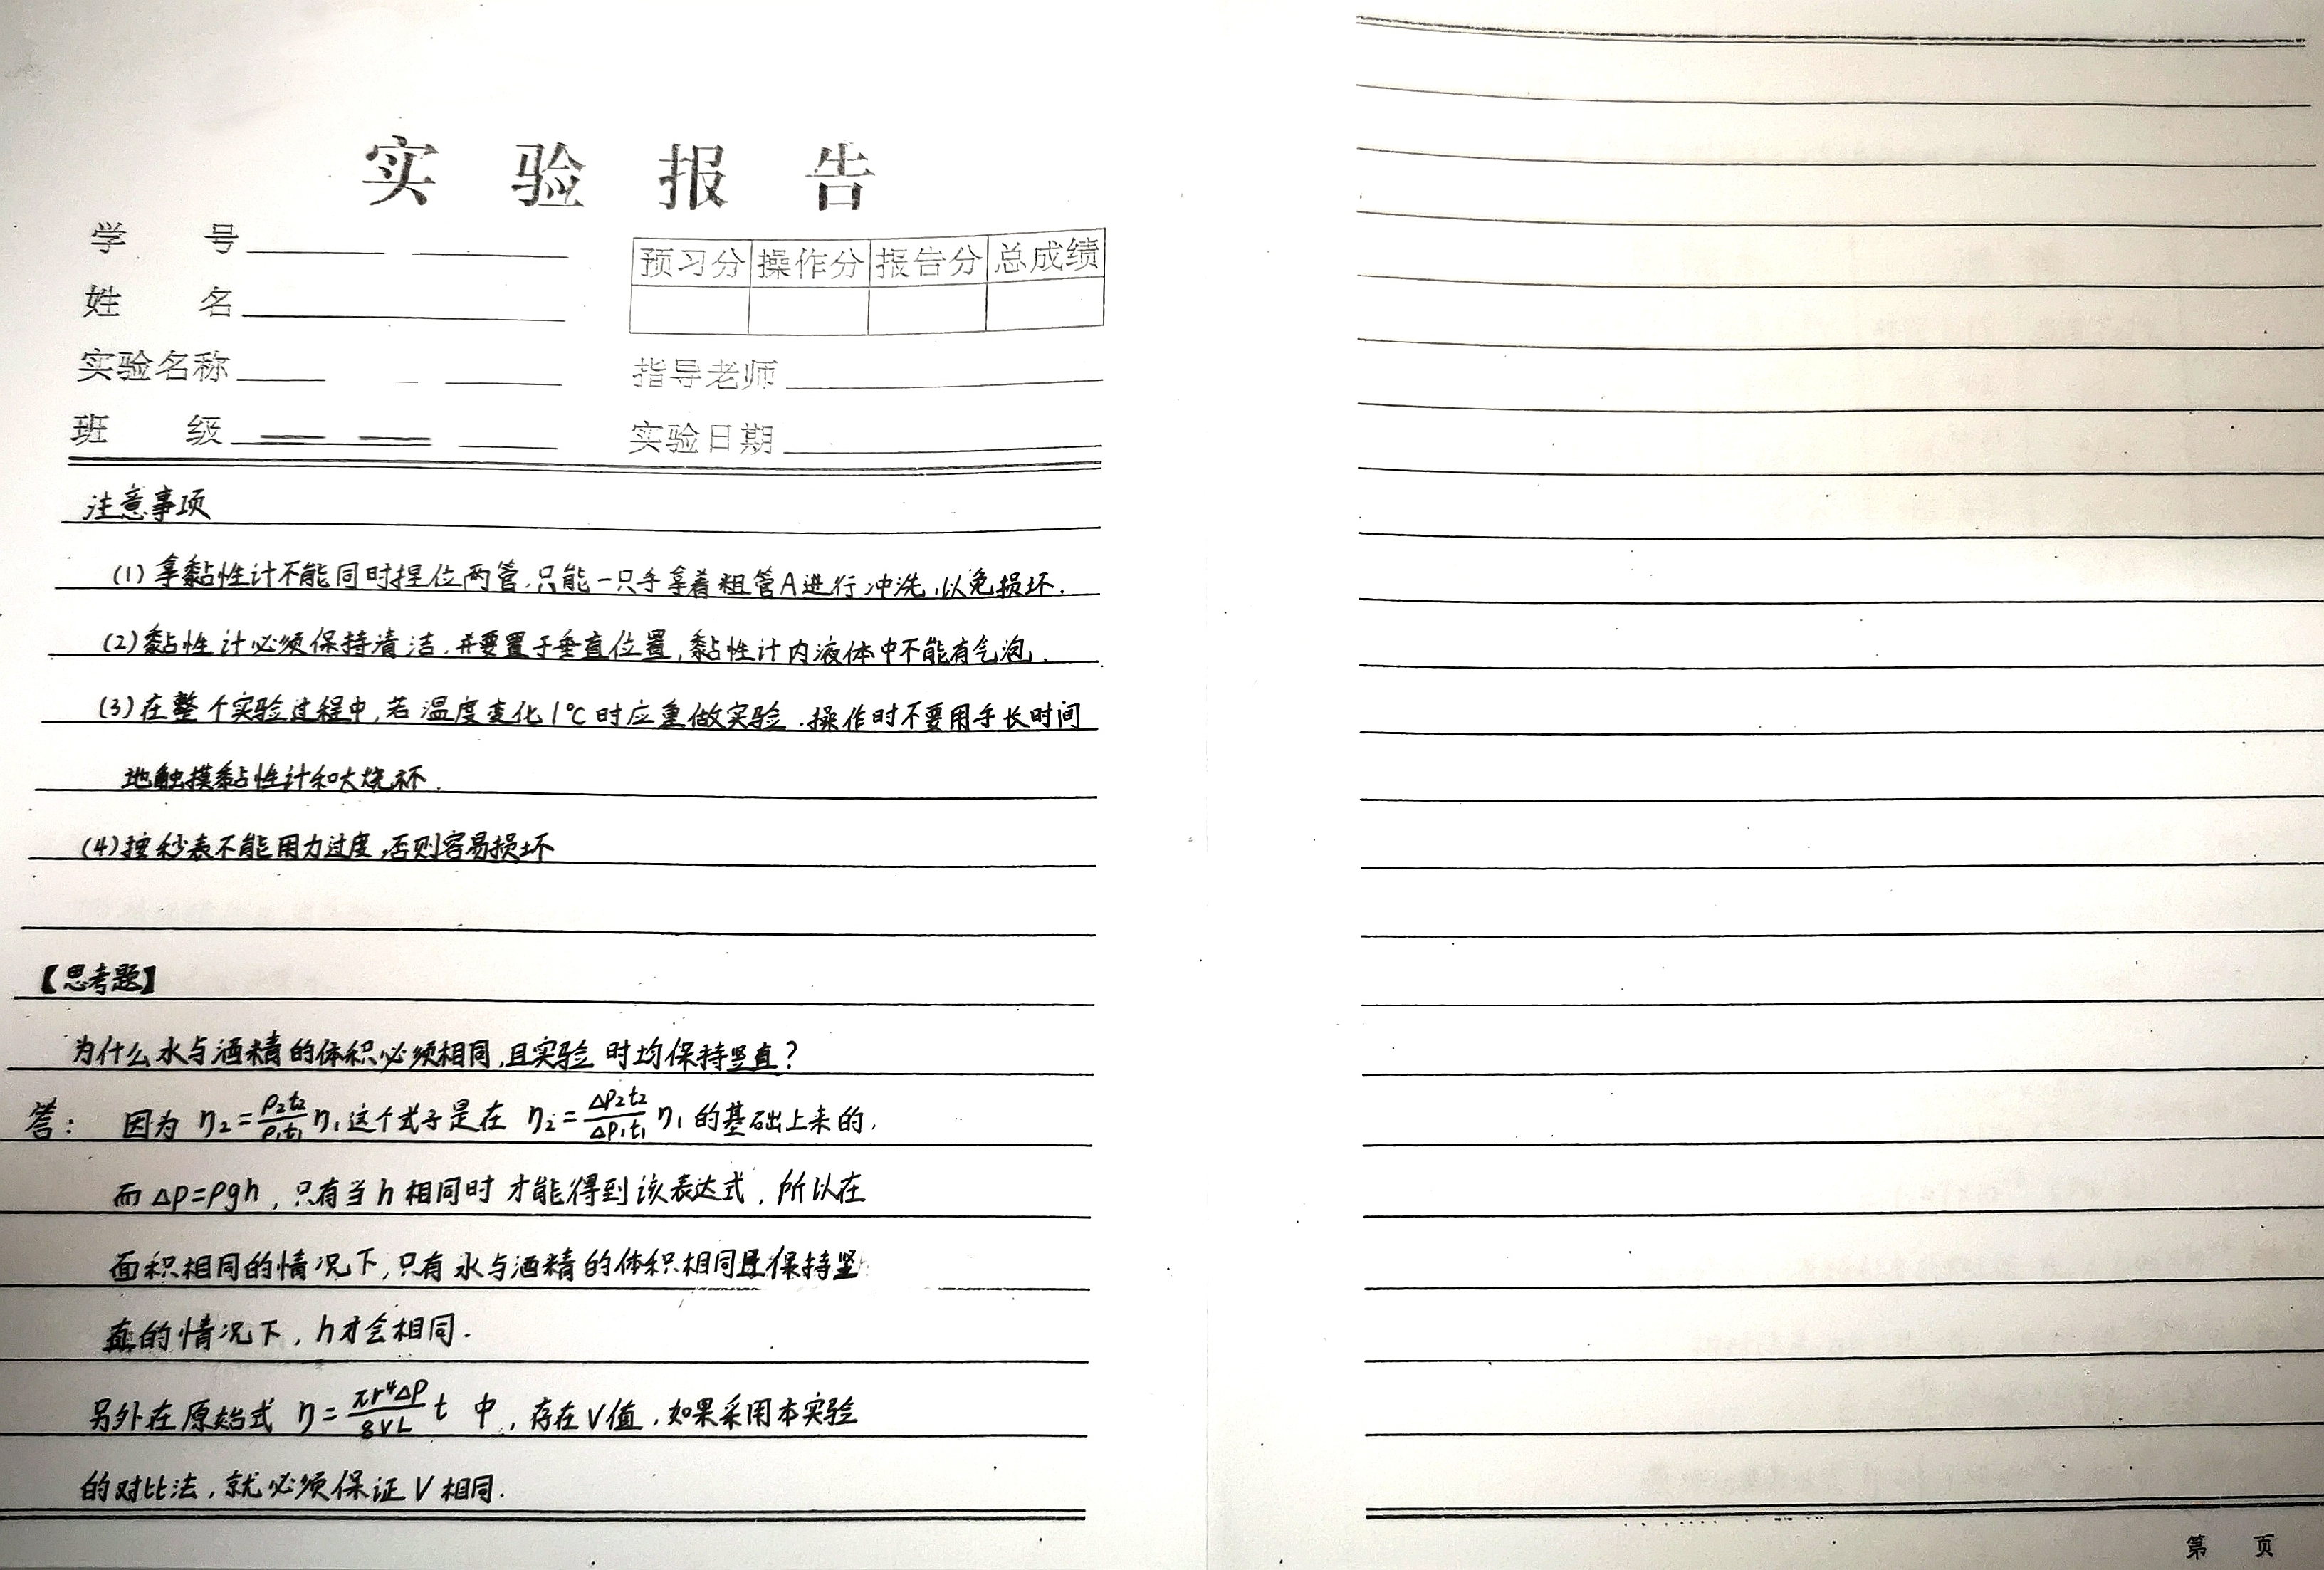 实验报告
学 号
预习分 操作分 报告分 总成绩
姓 名
实验名称
指导老师
班 级
实验日期
注意事项
(1)拿黏性计不能同时捏位两管,只能一只手拿着粗管A进行冲洗,以免损坏.
(2)黏性计必须保持清洁,并要置于垂直位置,黏性计内液体中不能有气泡.
(3)在整个实验过程中,若温度变化1℃时应重做实验.操作时不要用手长时间
地触摸黏性计和大烧杯.
(4)按秒表不能用力过度,否则容易损坏
【思考题】
为什么水与酒精的体积必须相同,且实验时均保持竖直?
答: 因为 η₂=ρ₂t₂/ρ₁t₁ η₁这个式子是在 η₂=ΔP₂t₂/ΔP₁t₁ η₁的基础上来的,
而 ΔP=ρgh,只有当h相同时才能得到该表达式,所以在
面积相同的情况下,只有水与酒精的体积相同且保持竖
直的情况下,h才会相同.
另外在原始式 η=πr⁴ΔP/8VL t 中,存在V值,如果采用本实验
的对比法,就必须保证V相同.
第 页